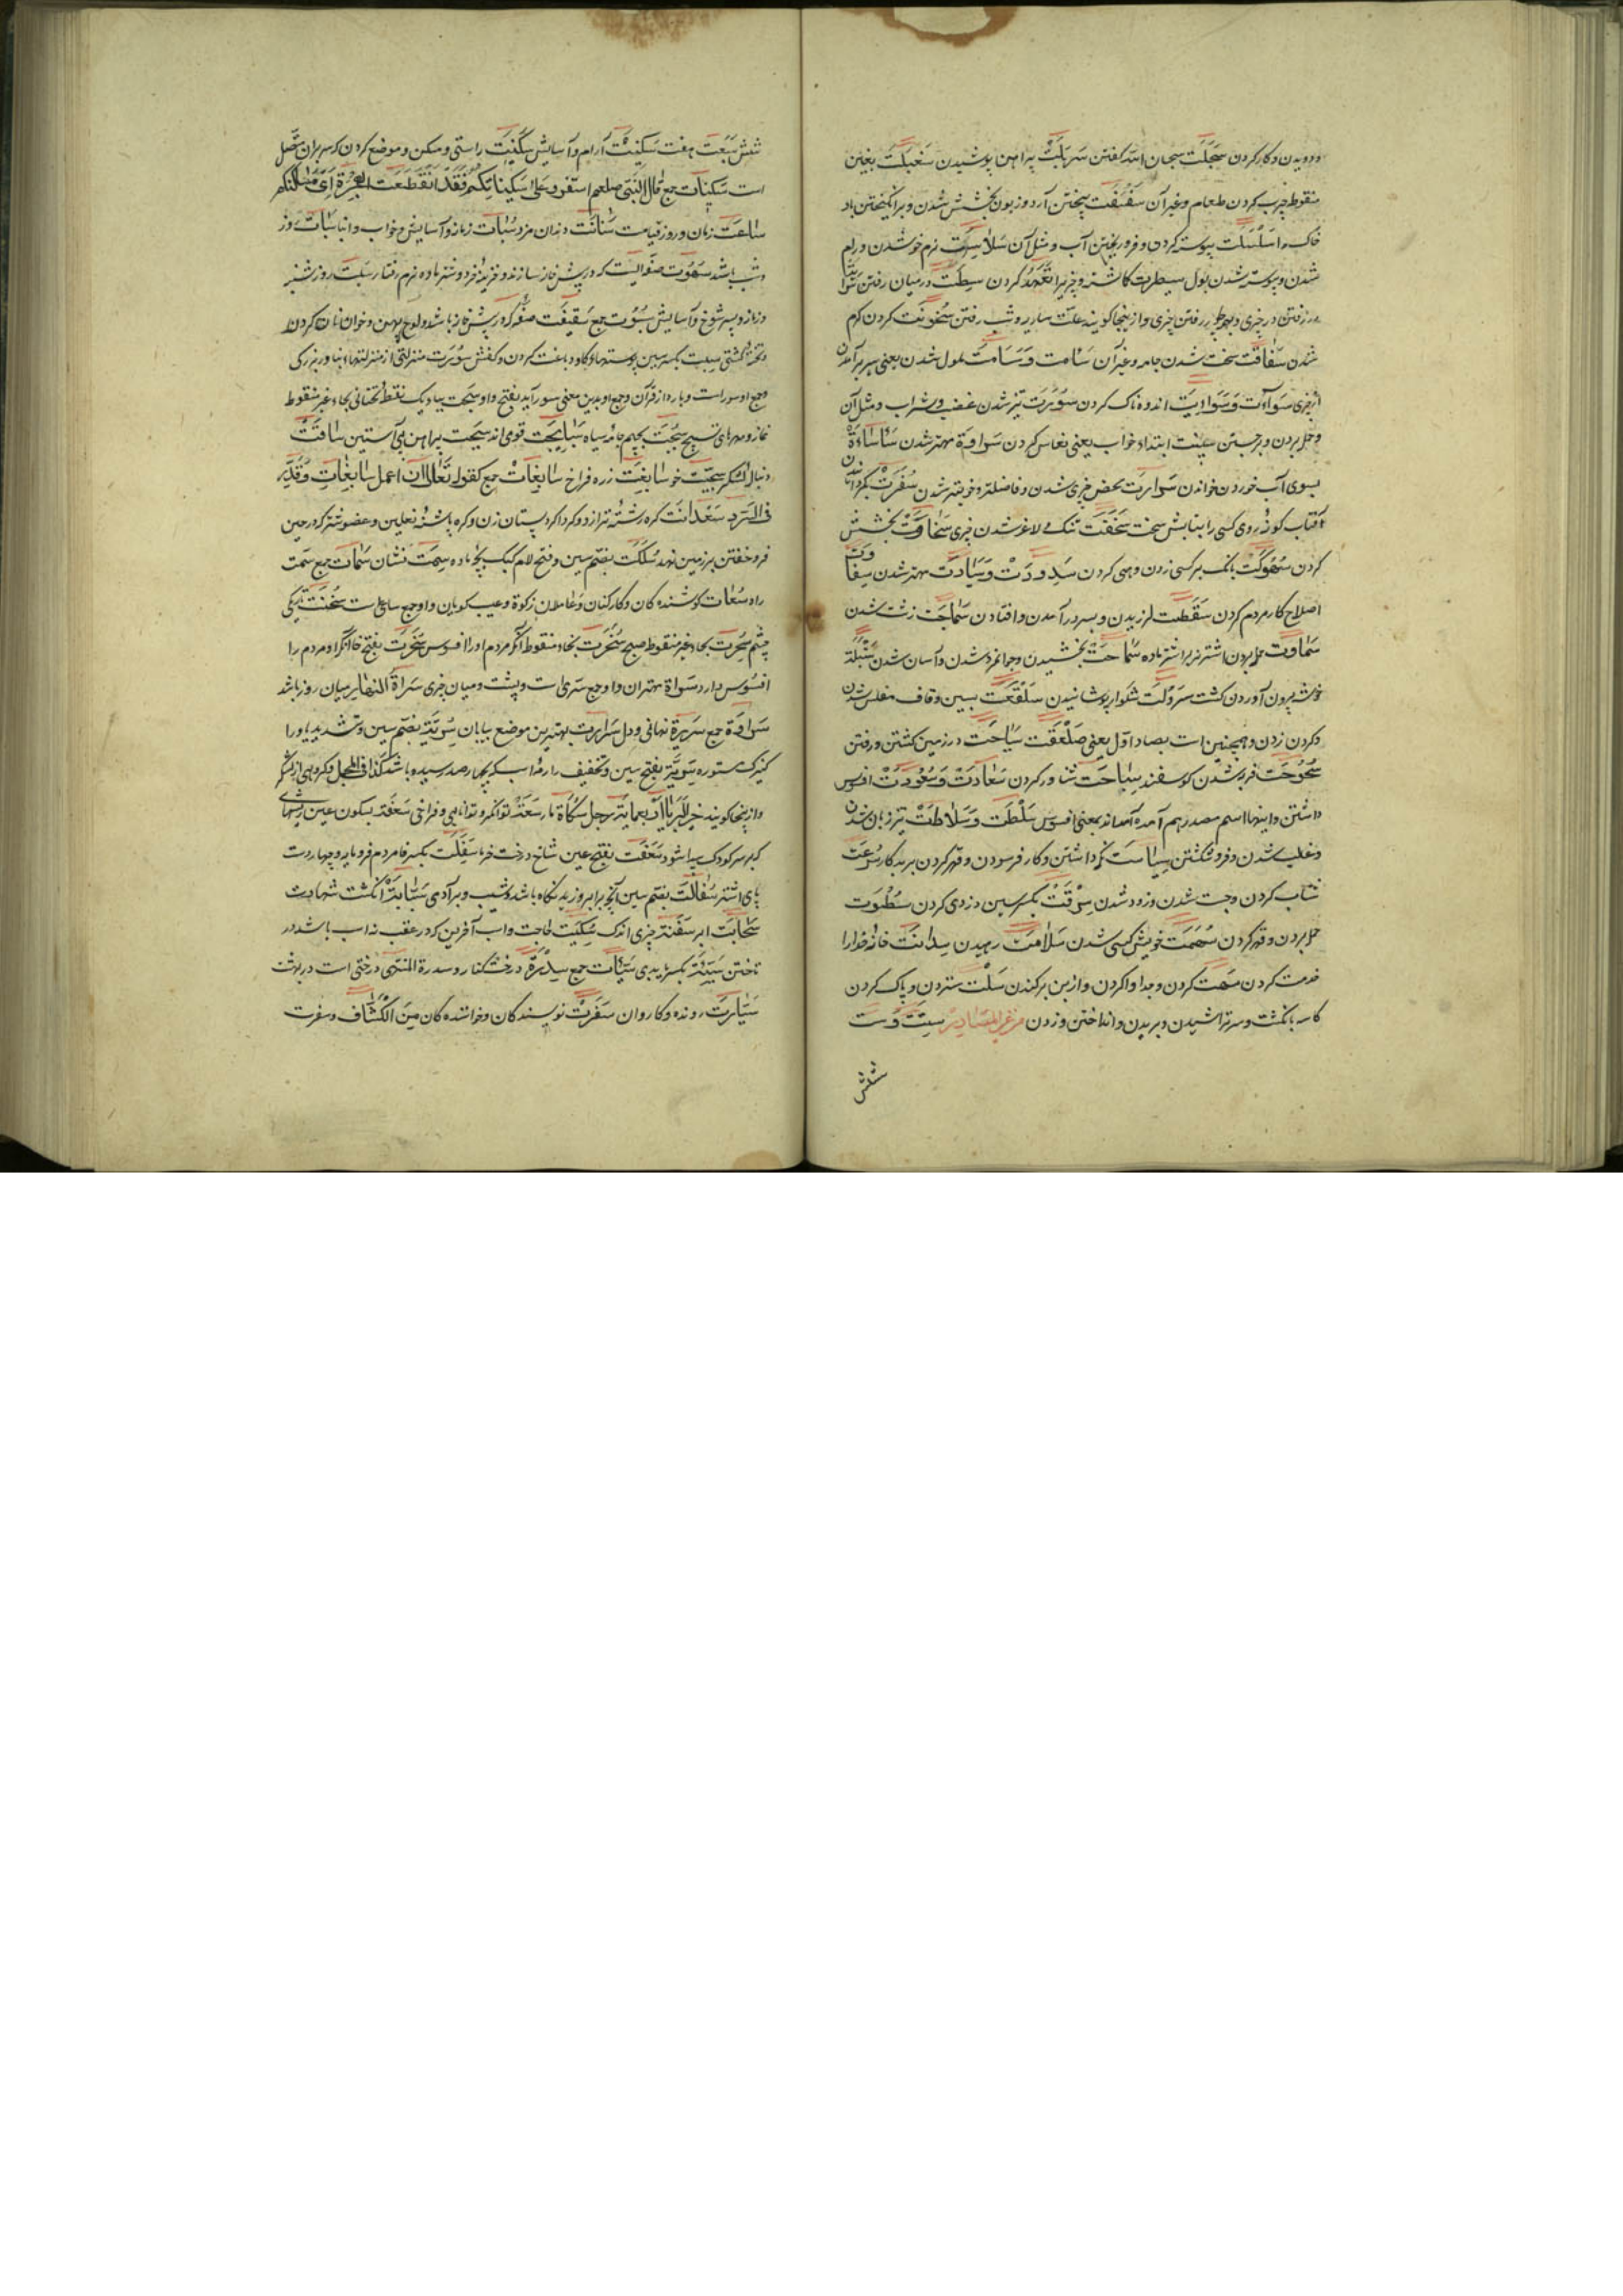 ودویدن وکار کردن سَبحَلَت سبحان الله گفتن سَربَلَتْ پیراهن پوشیدن سَغبَلَت بغین
منقوط چرب کردن طعام وغیر آن سَفسَفَت پیختن آرد و زبون بخشش شدن وبرانگیختن باد
خاک را سَلْسَلَت پیوسته کردن و فرو ریختن آب و مثل آن سَلاسَت نرم خو شدن و رام
شدن و پیوسته شدن بول سیطرت کاشته و چیزیرا تَعَهُّد کردن سِطَت در میان رفتن
در رفتن در چیزی رفتن چیزی واز ینجا گویند علت ساریه وشب رفتن سُخُونَت کردن گرم
شدن سَفاقَت سخت شدن جامه وغیر آن سَآمت وَسَامَت ملول شدن یعنی سیر برآمدن
از چیزی سَوآءَت وَسَوائِیَت اندوهناک کردن سَوْرَت تیز شدن غضب و شراب و مثل آن
وحمله بردن و برجستن سِنَت ابتداء خواب یعنی نعاس کردن سَراوَة مهتر شدن سَأسَاءَةْ
بسوی آب خوردن خواندن سَوائِیَت محض چیزی شدن و فاضلتر و خوبتر شدن سُفْرَت بگردانیدن
آفتاب گونه روی کسی را بتابش سخت سَخَفَت تنک و لاغر شدن چیزی سَخاوَتْ بخشش
کردن سَهْوَكَت بانک بر کسی زدن و هی کردن سَیدودَتْ وَسِیَادَت مهتر شدن سِفارَت
اصلاح کار مردم کردن سَقَطَت لرزیدن و بسر در آمدن و افتادن سَمَاجَت زشت شدن
سَمَاوت حمله بردن اشتر نر بر اشتر ماده سَمَاحَتْ بخشیدن و جوانمرد شدن و آسان شدن سَنْبَلَة
خوشه بیرون آوردن کشت سَروَلَت شلوار پوشانیدن سَلقَعَت بسین وقاف مفلس شدن
وگردن زدن و همچنین است بصاد اوّل یعنی صَلْقَعَت سِیَاحَت در زمین گشتن و رفتن
سُحُوحَت فربه شدن گوسفند سِبَاحَت شناور کردن سَعَادَتْ وَسُعُودَتْ افسوس
داشتن و اینها اسم مصدر هم آمده آمده اند بمعنی افسوس سَلْطَت وَسَلاطَتْ تیز زبان شدن
وغلبه شدن و فرو گشتن سِیَاسَت نگه داشتن و کار فرسودن و قهر کردن بر بد کار سُرعَت
شتاب کردن و جست شدن و زود شدن سِرْقَتْ بکسر سین دزدی کردن سَطْوَت
حمله بردن و قهر کردن سُهْمَت خویش کسی شدن سَلامَت رهیدن سِدانَت خانه خدا را
خدمت کردن سَمَت کردن و جدا وا کردن و از بن برکندن سَلْت ستردن و پاک کردن
کاسه بانگشت و سر تراشیدن و بریدن و انداختن و زدن مِن غَیرِ المَصادِر سِتَّت وَست
شش
شش سَبْعَت هفت سَكِینَتْ آرام و آسایش سَكِنَت راستی و مسکن و موضع گردن که سر بران متصل
است سَكِنات جمع قال النبی صلعم استقروا علی سَكِناتِكُم فَقَد انقَطَعَتِ الهِجْرَة أی مَساكِنكم
سَاعَت زمان و روز قیامت سَنانَت دندان مزد سُبات زمانه و آسایش و خواب وابنا سُبات روز
و شب باشد سَهْوَت صفه ایست که در پیش خانه سازند و خزینه خرد و شتر ماده نرم رفتار سَبْت روز شنبه
و زمانه و پسر شوخ و آسایش سُبُوت جمع سَقِیفَت صفه که در پیش خانه باشد و لوح پهن و خوان نان کردن
و تخته کشتی سِبت بکسر سین پوستهاء گاو دباغت کردن و کفش سُوْرَت منزلتی از منزلتهاء بنا و بزرگی
وجمع او سور است و پاره از قرآن وجمع او بدین معنی سور آید بفتح واو سَبحَت بباء یک نقطه تحتانی بحاء غیر منقوط
نماز و مهرهای تسبیح سُبْجَت بجیم جامه سیاه سَبایِجَت قومی اند سَبِیجَت پیراهن بی آستین سَاقَتْ
دنبال لشکر سَجِیَّت خو سَابِغَت زره فراخ سَابِغَاتْ جمع کقوله تعالی ان اعمل سَابِغَاتٍ وَقَدِّر
فی السَّرد سَعْدانَت گره رشته ترازو و گرداگرد پستان زن و گره پاشنه نعلین و عضو شتر که در حین
فرو خفتن بر زمین نهد سُلَكَت بضم سین و فتح لام کبک بچه ماده سِمَت نشان سِمَات جمع سَمت
راه سُعَات کوشندگان و کارکنان و عاملان زکوة وعیب گویان و او جمع ساعی است سُخْنَت تاریکی
چشم سُحْرَت بحاء غیر منقوط صبح سُخْرَت بخاء منقوط آنکه مردم او را افسوس سُخَرَت بفتح خا آنکه او مردم را
افسوس دارد سَراة مهتران و او جمع سَری است و پشت و میان چیزی سَراةُ النَّهار میان روز باشد
سَراوَة جمع سَرِیرَة نهانی و دل سَرارَت بهترین موضع بیابان سُرِّیَّة بضم سین و تشدید یا و را
کنیزک مستوره سَرِیَّة بفتح سین و تخفیف را رمه اسب که بچهار صد رسیده باشد کذا فی المجمل و گروهی از لشکر
و از ینجا گویند خیرُ السَّرایا اربعمایة رجل سَكَاة مار سَعَة توانگر و توانایی و فراخی سَعْفَة بسکون عین ریشهای
که بر سر کودک پیدا شود سَعَفَت بفتح عین شاخ درخت خرما سَفِلَت بکسر فا مردم فرومایه و چهار دست
پای اشتر سُفَالَتْ بضم سین آنچه برابر وزیدنگاه باشد و شیب و برآدمی سَبَّابَةْ انگشت شهادت
سَحَابَت ابر سَفَنَة چیزی اندک سُكَیْت حاجت و اسب آخرین که در عقب همه اسب باشد در
تاختن سَیِّئَة بکسر یا بدی سَیِّئَات جمع سِدْرَةْ درخت کنار و سدرة المنتهی درختی است در بهشت
سَیَّارَت رونده و کاروان سَفَرَتْ نویسندگان و خوانندگان مِنَ الکَشَّاف و سفرت